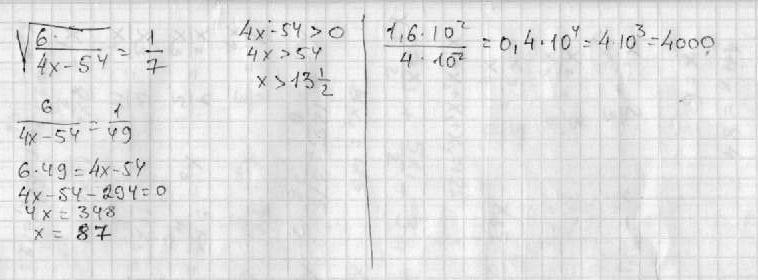 √(6/(4x-54)) = 1/7
6/(4x-54) = 1/49
6·49=4x-54
4x-54-294=0
4x=348
x= 87
4x-54>0
4x>54
x>13 1/2
(1,6·10²)/(4·10⁻²) = 0,4·10⁴=4·10³=4000